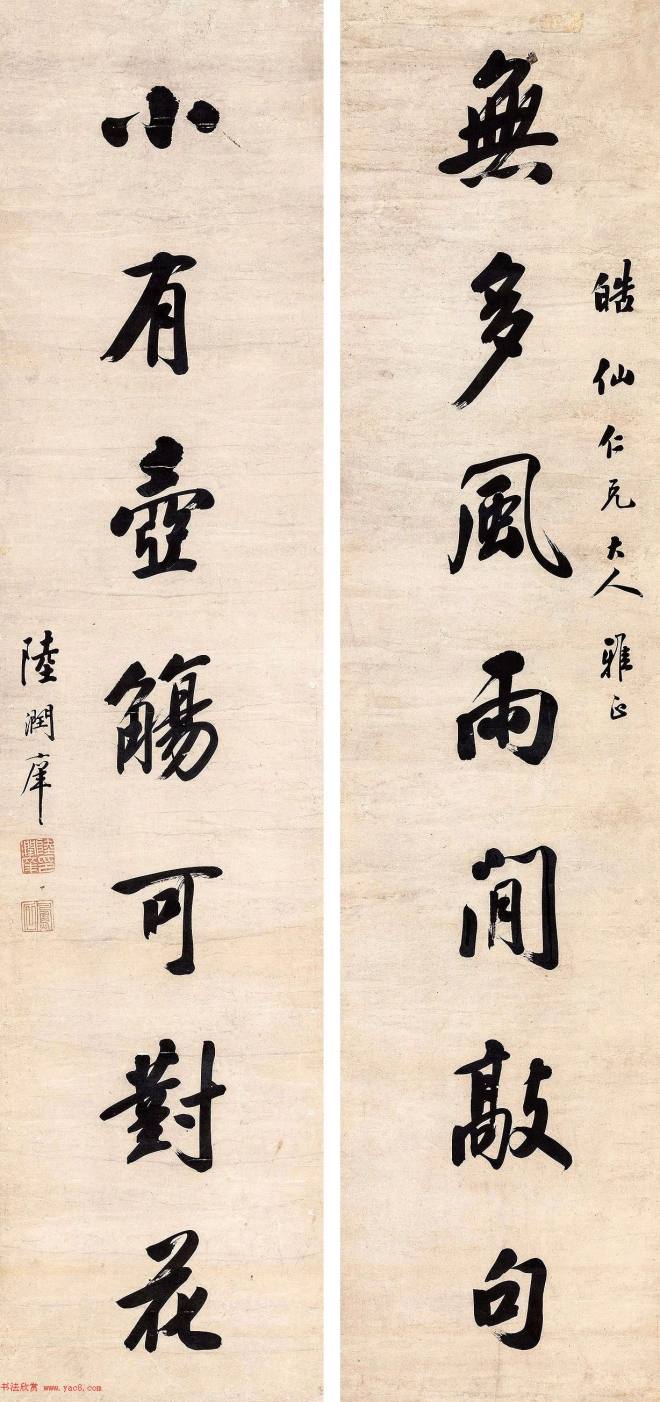 皓仙仁兄大人雅正
無多風雨閒敲句
小有壺觴可對花
陸潤庠
书法欣赏 www.yac8.com